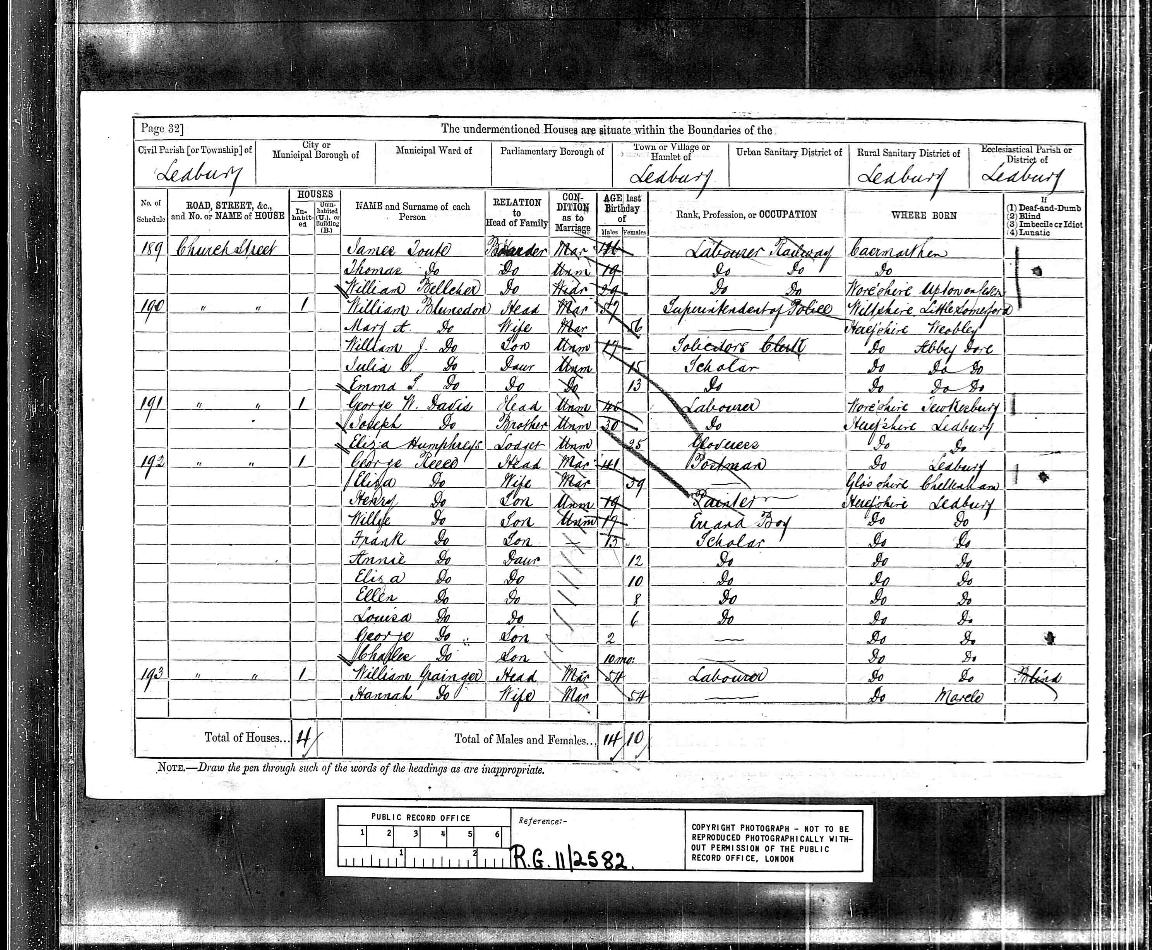 Page 32]
The undermentioned Houses are situate within the Boundaries of the
Civil Parish [or Township] of
City or Municipal Borough of
Municipal Ward of
Parliamentary Borough of
Town or Village or Hamlet of
Urban Sanitary District of
Rural Sanitary District of
Ecclesiastical Parish or District of
Ledbury Ledbury Ledbury Ledbury
No. of Schedule
ROAD, STREET, &c., and No. or NAME of HOUSE
HOUSES
In-habit-ed
Unin-habited (U.), or Building (B.)
NAME and Surname of each Person
RELATION to Head of Family
CON-DITION as to Marriage
AGE last Birthday of
Males Females
Rank, Profession, or OCCUPATION
WHERE BORN
If
(1) Deaf-and-Dumb
(2) Blind
(3) Imbecile or Idiot
(4) Lunatic
189 Church Street James Boarder Mar Labourer Railway Caermarthen
Thomas Do Do Unm 19 Do Do Do
William Bellcher Do Widr Do Do Worc'shire Upton on Severn
190 " " 1 William Blunsdon Head Mar 57 Superintendent of Police Wiltshire Little Somerford
Mary A. Do Wife Mar 56 Herefshire Weobley
William J. Do Son Unm 17 Solicitors Clerk Do Abbey Dore
Julia C. Do Daur Unm 15 Scholar Do Do Do
Emma Do Do Do 13 Do Do Do Do
191 " " 1 George W. Davis Head Unm 45 Labourer Worc'shire Tewkesbury
Joseph Do Brother Unm 30 Do Herefshire Ledbury
Eliza Humphreys Lodger Unm 35 Gloveress Do Do
192 " " 1 George Reece Head Mar 41 Postman Do Ledbury
Eliza Do Wife Mar 39 Glos'shire Cheltenham
Henry Do Son Unm 19 Painter Herefshire Ledbury
Willie Do Son Unm 17 Errand Boy Do Do
Frank Do Son 13 Scholar Do Do
Annie Do Daur 12 Do Do Do
Eliza Do Do 10 Do Do Do
Ellen Do Do 8 Do Do Do
Louisa Do Do 6 Do Do Do
George Do Son 2 Do Do
Charles Do Son 10 mo: Do Do
193 " " 1 William Grainger Head Mar 54 Labourer Do Do Blind
Hannah Do Wife Mar 54 Do Marcle
Total of Houses... 4
Total of Males and Females... 14 10
NOTE.—Draw the pen through such of the words of the headings as are inappropriate.
PUBLIC RECORD OFFICE
1 2 3 4 5 6
1 2
Reference:-
R.G. 11/2582.
COPYRIGHT PHOTOGRAPH - NOT TO BE
REPRODUCED PHOTOGRAPHICALLY WITH-
OUT PERMISSION OF THE PUBLIC
RECORD OFFICE, LONDON